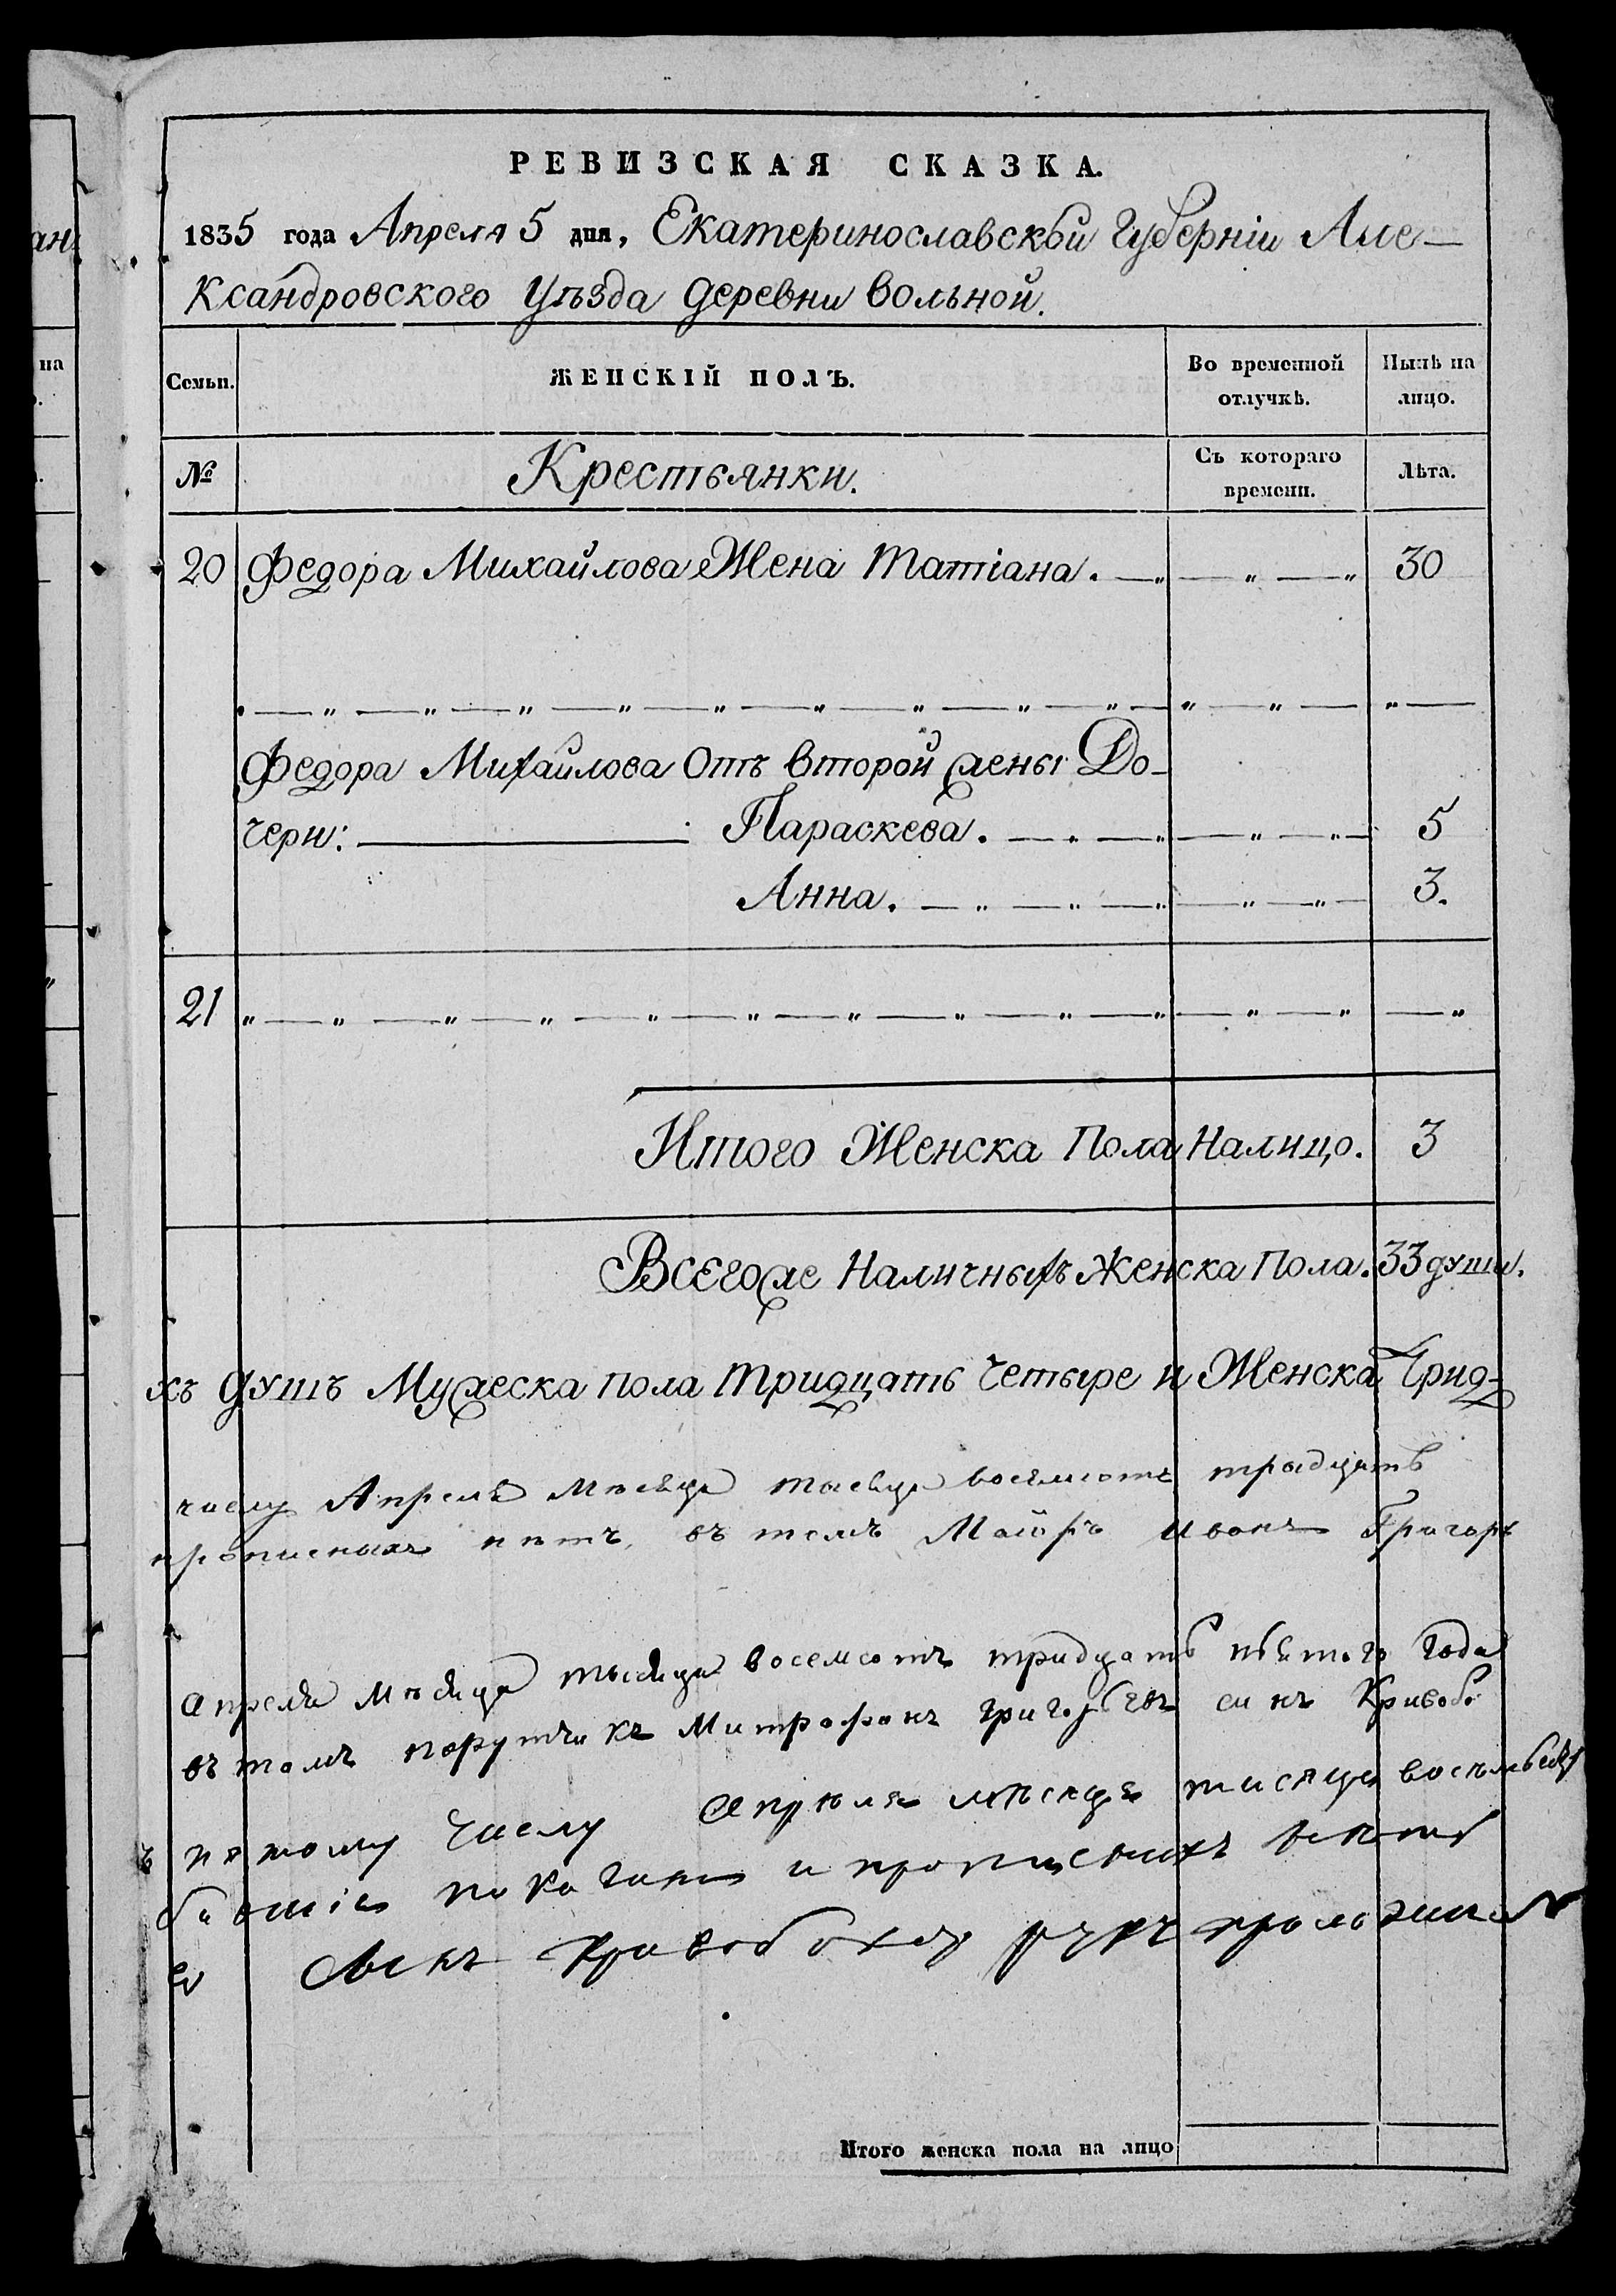 РЕВИЗСКАЯ СКАЗКА.
1835 года Апреля 5 дня, Екатеринославской Губерніи Але-
ксандровского Уѣзда деревни Вольной.
Семьи.
ЖЕНСКІЙ ПОЛЪ.
Во временной отлучкѣ.
Нынѣ на лицо.
№
Крестьянки.
Съ котораго времени.
Лѣта.
20 Федора Михайлова Жена Татіана. 30
Федора Михайлова отъ второй жены До-
чери: Параскева. 5
Анна. 3.
21
Итого Женска Пола Налицо. 3
Всегоже Наличныхъ Женска Пола. 33 души.
хъ душъ Мужеска пола тридцать четыре и Женска Трид-
числу Апреля месяца тысяца восемсотъ тридцать
прописныхъ нетъ, въ томъ Маіоръ Иванъ Григорь
Апреля мѣсяца тысяца восемсотъ тридцать пятого года
въ томъ порутчикъ Митрофанъ Григорьевъ синъ Кривобо
ъ пятому числу Апреля мѣсяца тисяца восемьсот
показани и прописнихъ нетъ
Синъ Кривобокъ руку приложилъ
Итого женска пола на лицо
ан
на